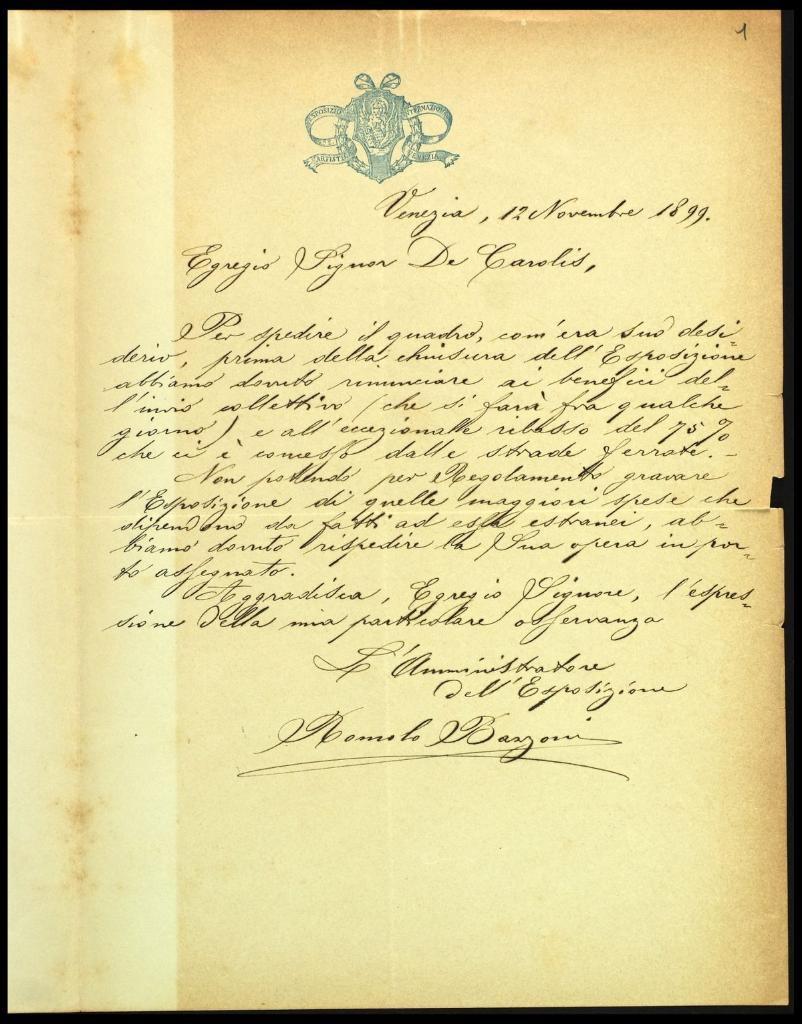 1
ESPOSIZIO
ARTISTI
Venezia, 12 Novembre 1899.
Egregio Signor De Carolis,
Per spedire il quadro, com'era suo desi-
derio, prima della chiusura dell'Esposizione
abbiamo dovuto rinunciare ai benefici del-
l'invio collettivo (che si farà fra qualche
giorno) e all'eccezionale ribasso del 75%
che ci è concesso dalle strade ferrate. -
Non potendo per Regolamento gravare
l'Esposizione di quelle maggiori spese che
dipendono da fatti ad essa estranei, ab-
biamo dovuto rispedire la Sua opera in por-
to assegnato.
Aggradisca, Egregio Signore, l'espres-
sione della mia particolare osservanza
L'Amministratore
dell'Esposizione
Romolo Bazzoni